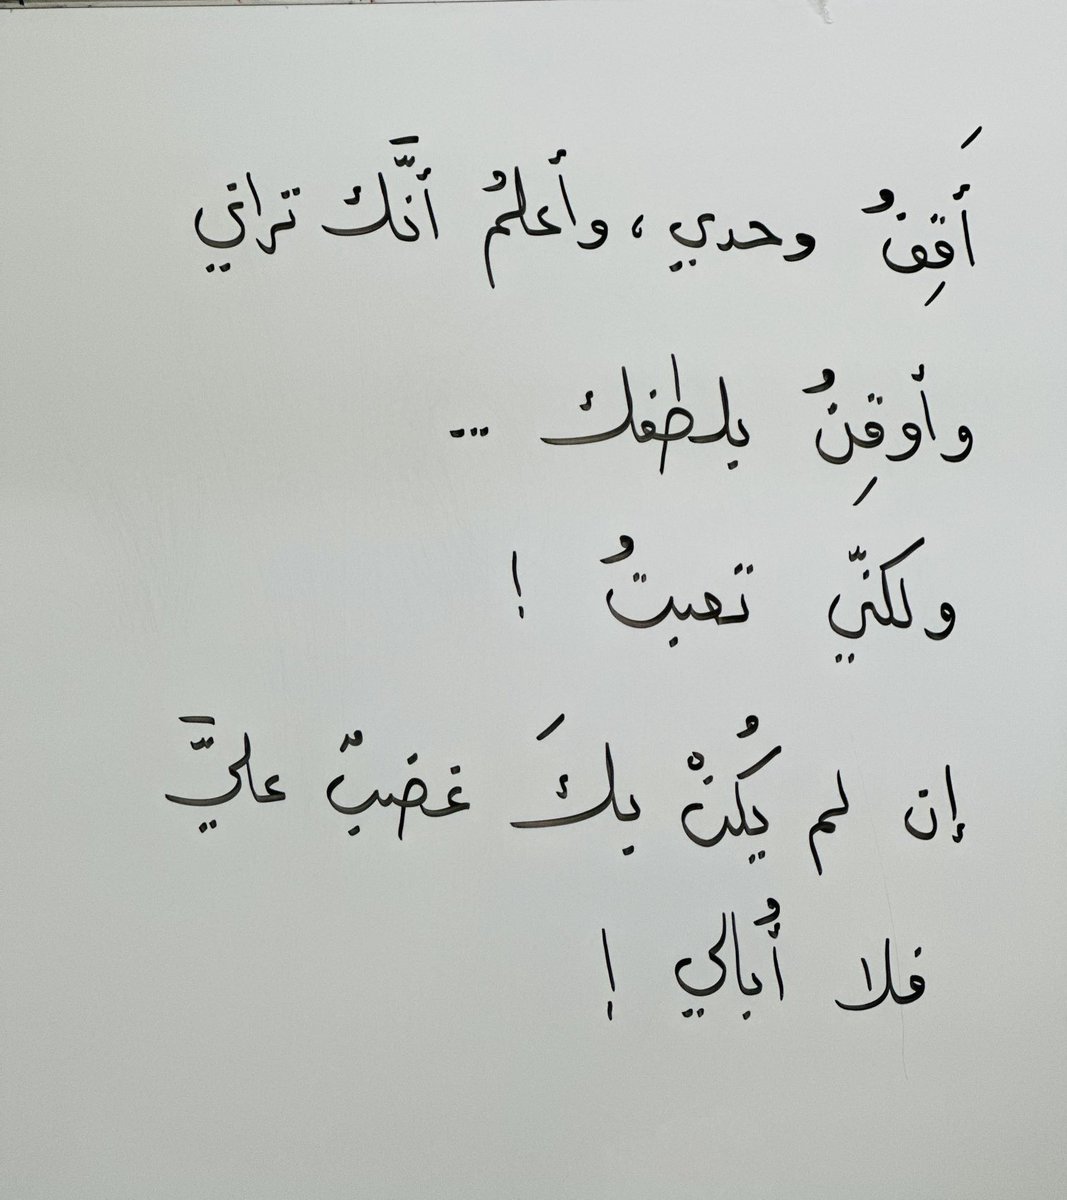 أَقِفُ وحدي، وأعلمُ أنَّك تراني
وأوقِنُ بلطفك ...
ولكنّي تعبتُ !
إن لم يَكُنْ بكَ غضبٌ عليَّ
فلا أُبالي !